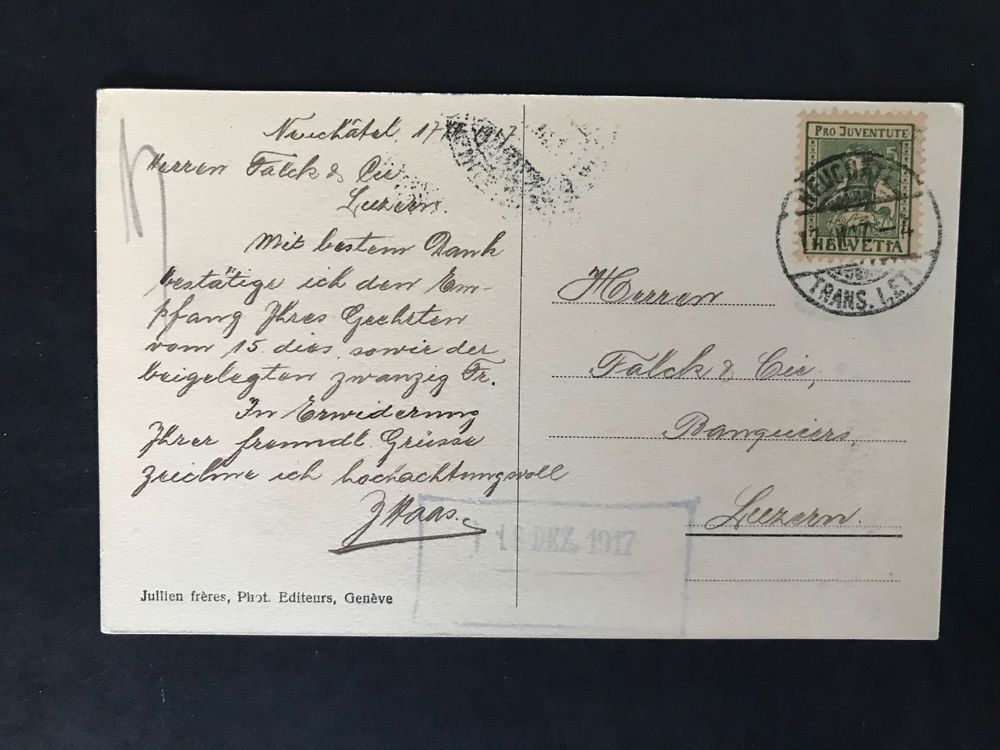 Neuchâtel, 1917
Herren Falck & Cie
Luzern.
Mit bestem Dank
bestätige ich den Em-
pfang Ihres Geehrten
vom 15. dies, sowie der
beigelegten zwanzig Fr.
In Erwiderung
Ihrer freundl. Grüsse
zeichne ich hochachtungsvoll
J Haas.
Jullien frères, Phot. Editeurs, Genève
PRO JUVENTUTE
5
HELVETIA
NEUCHATEL
TRANS. LET
Herren
Falck & Cie,
Banquiers,
Luzern.
DEZ. 1917